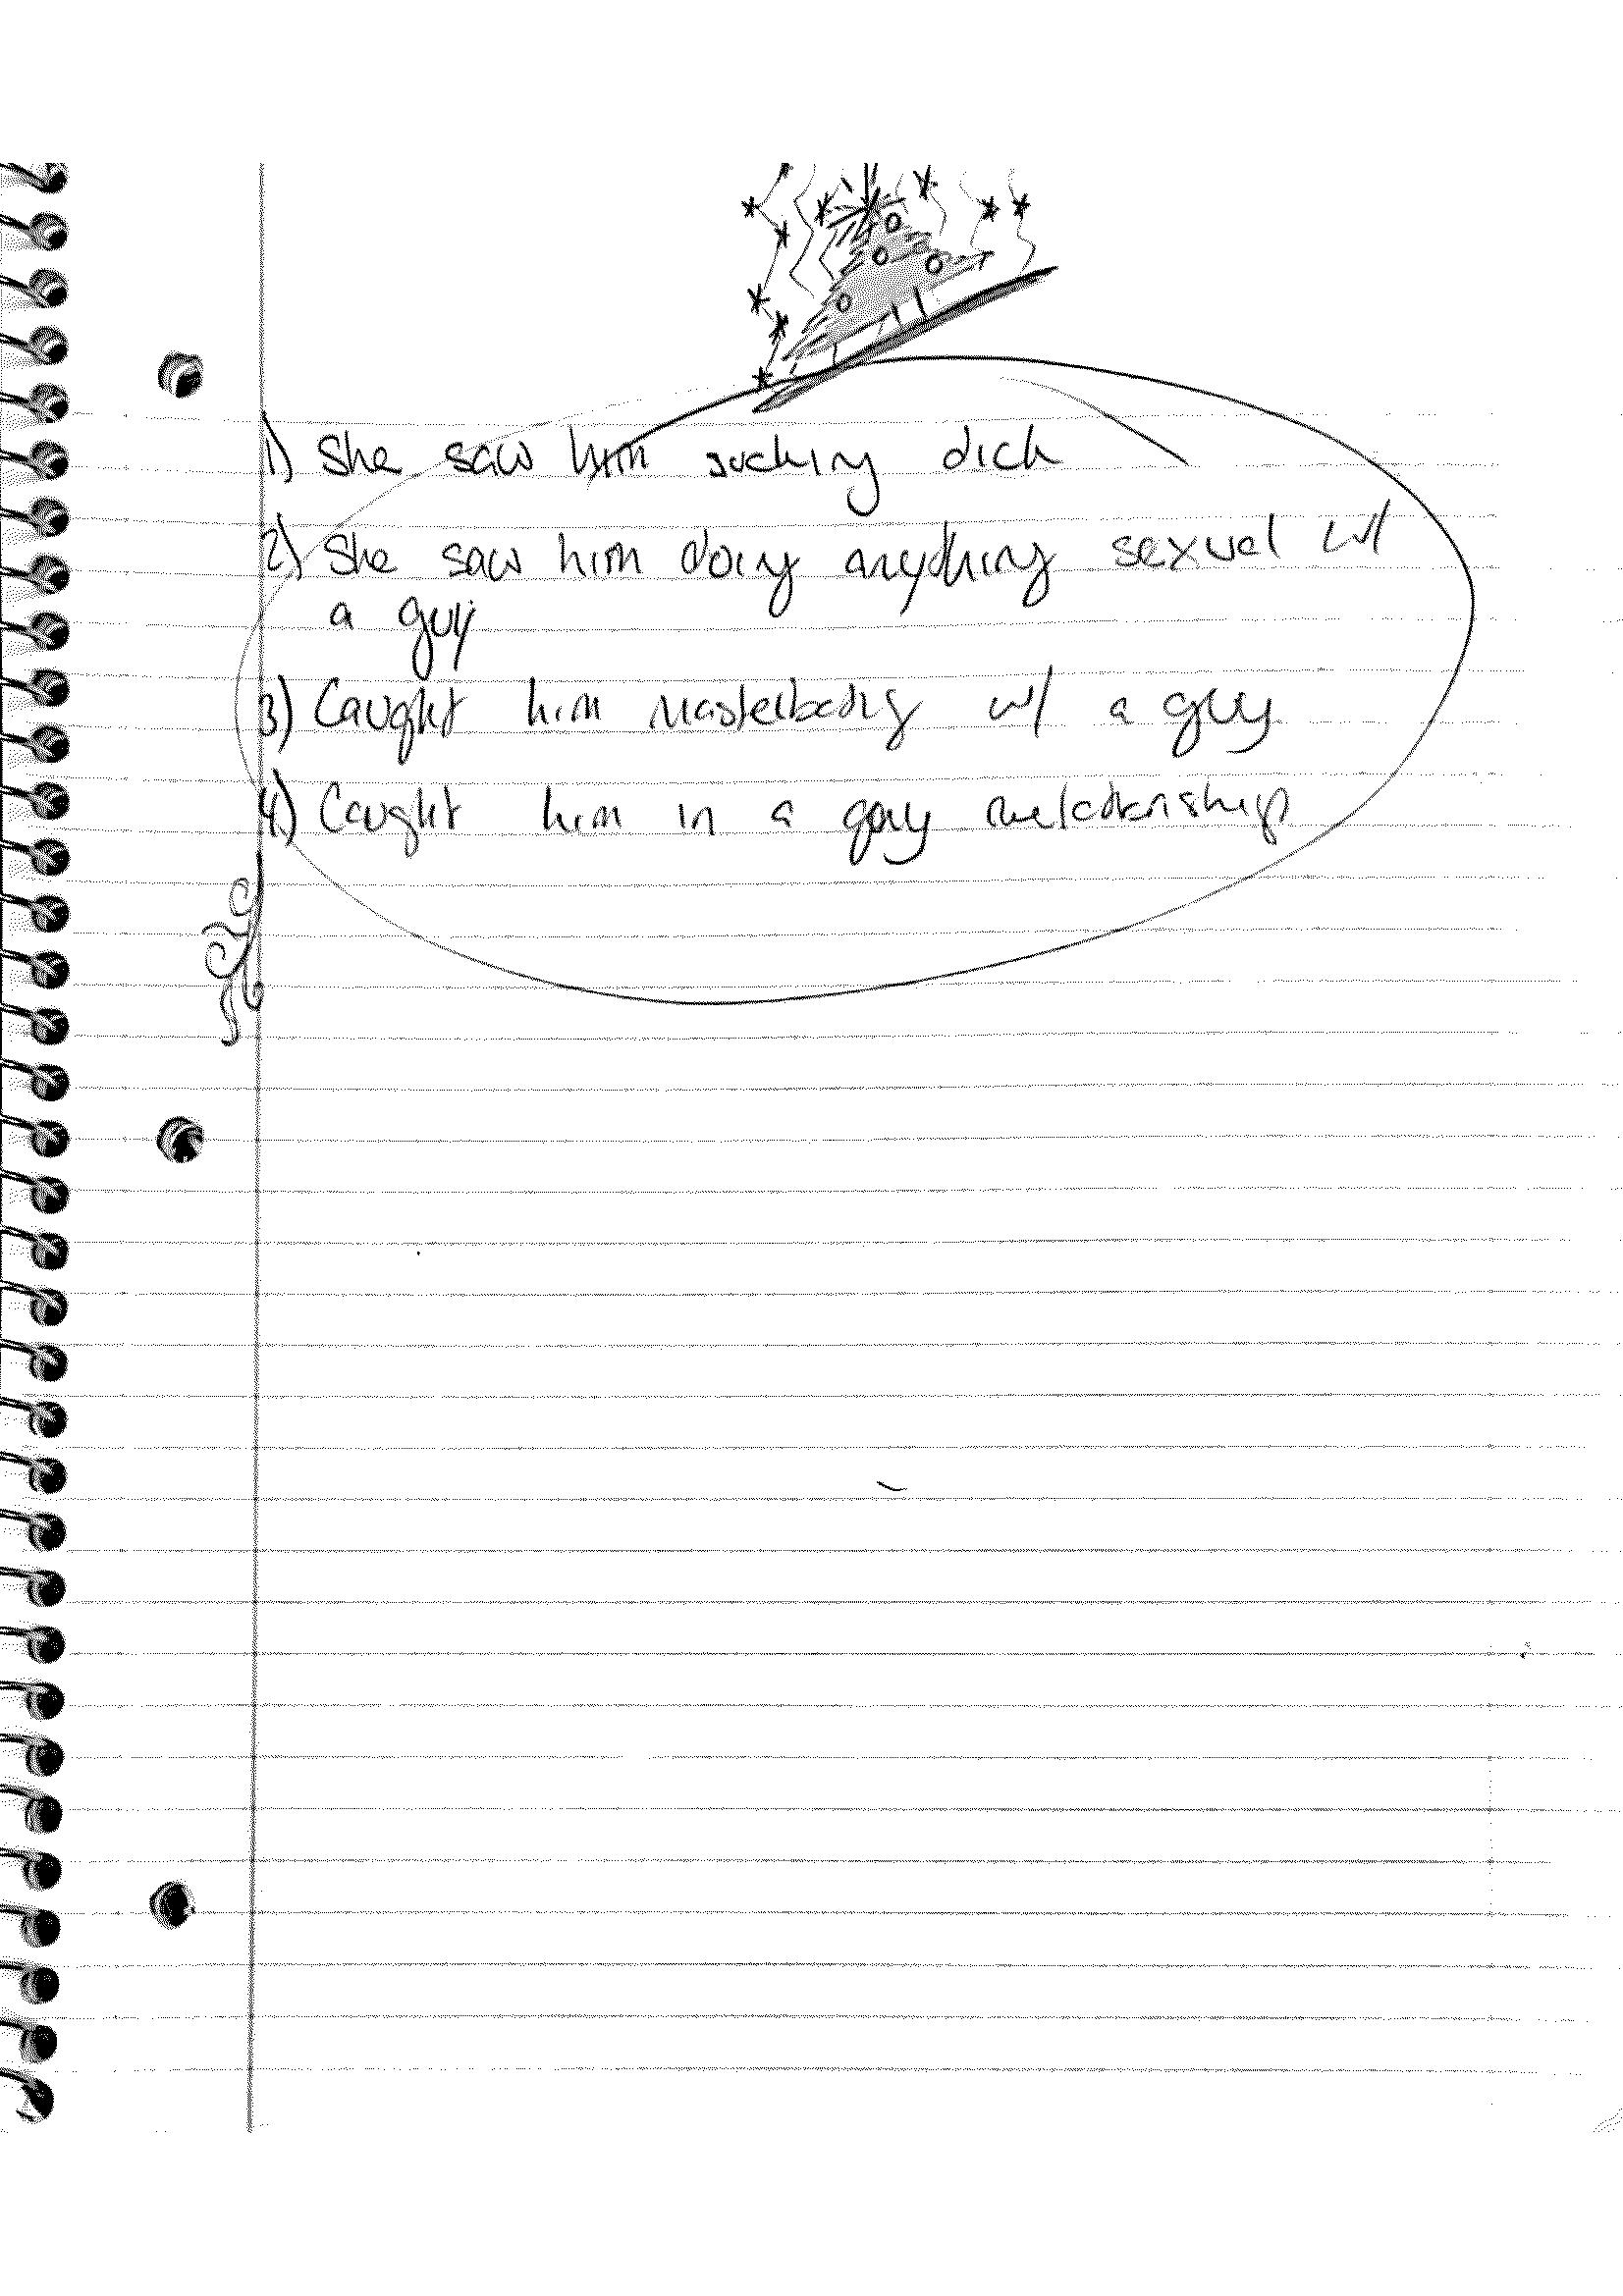 1) She saw him sucking dick
2) She saw him doing anything sexual w/
a guy
3) Caught him masterbating w/ a guy
4) Caught him in a gay relationship